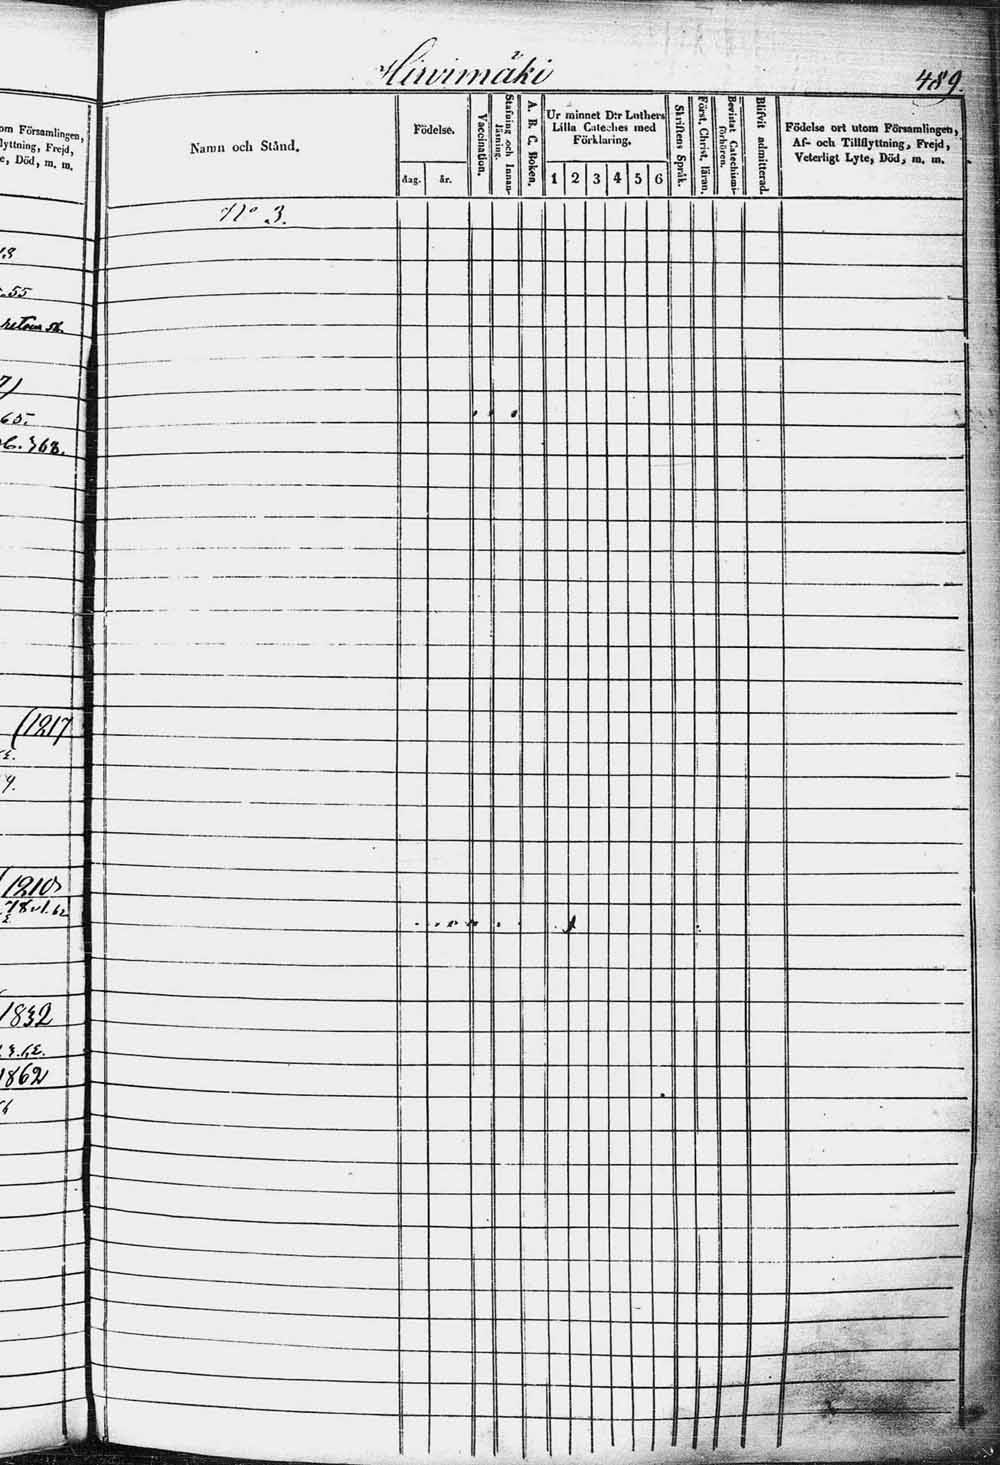 Hirvimäki
489.
om Församlingen,
lyttning, Frejd,
e, Död, m. m.
Namn och Stånd.
Födelse.
dag.
år.
Vaccination.
Stafning och Innan-
läsning.
A. B. C. Boken.
Ur minnet D:r Luthers
Lilla Cateches med
Förklaring.
1 2 3 4 5 6
Skriftens Språk.
Först. Christ. läran.
Bevistat Catechismi-
förhören.
Blifvit admitterad.
Födelse ort utom Församlingen,
Af- och Tillflyttning, Frejd,
Veterligt Lyte, Död, m. m.
No 3.
55
65.
368.
(1217
9.
1832
1862